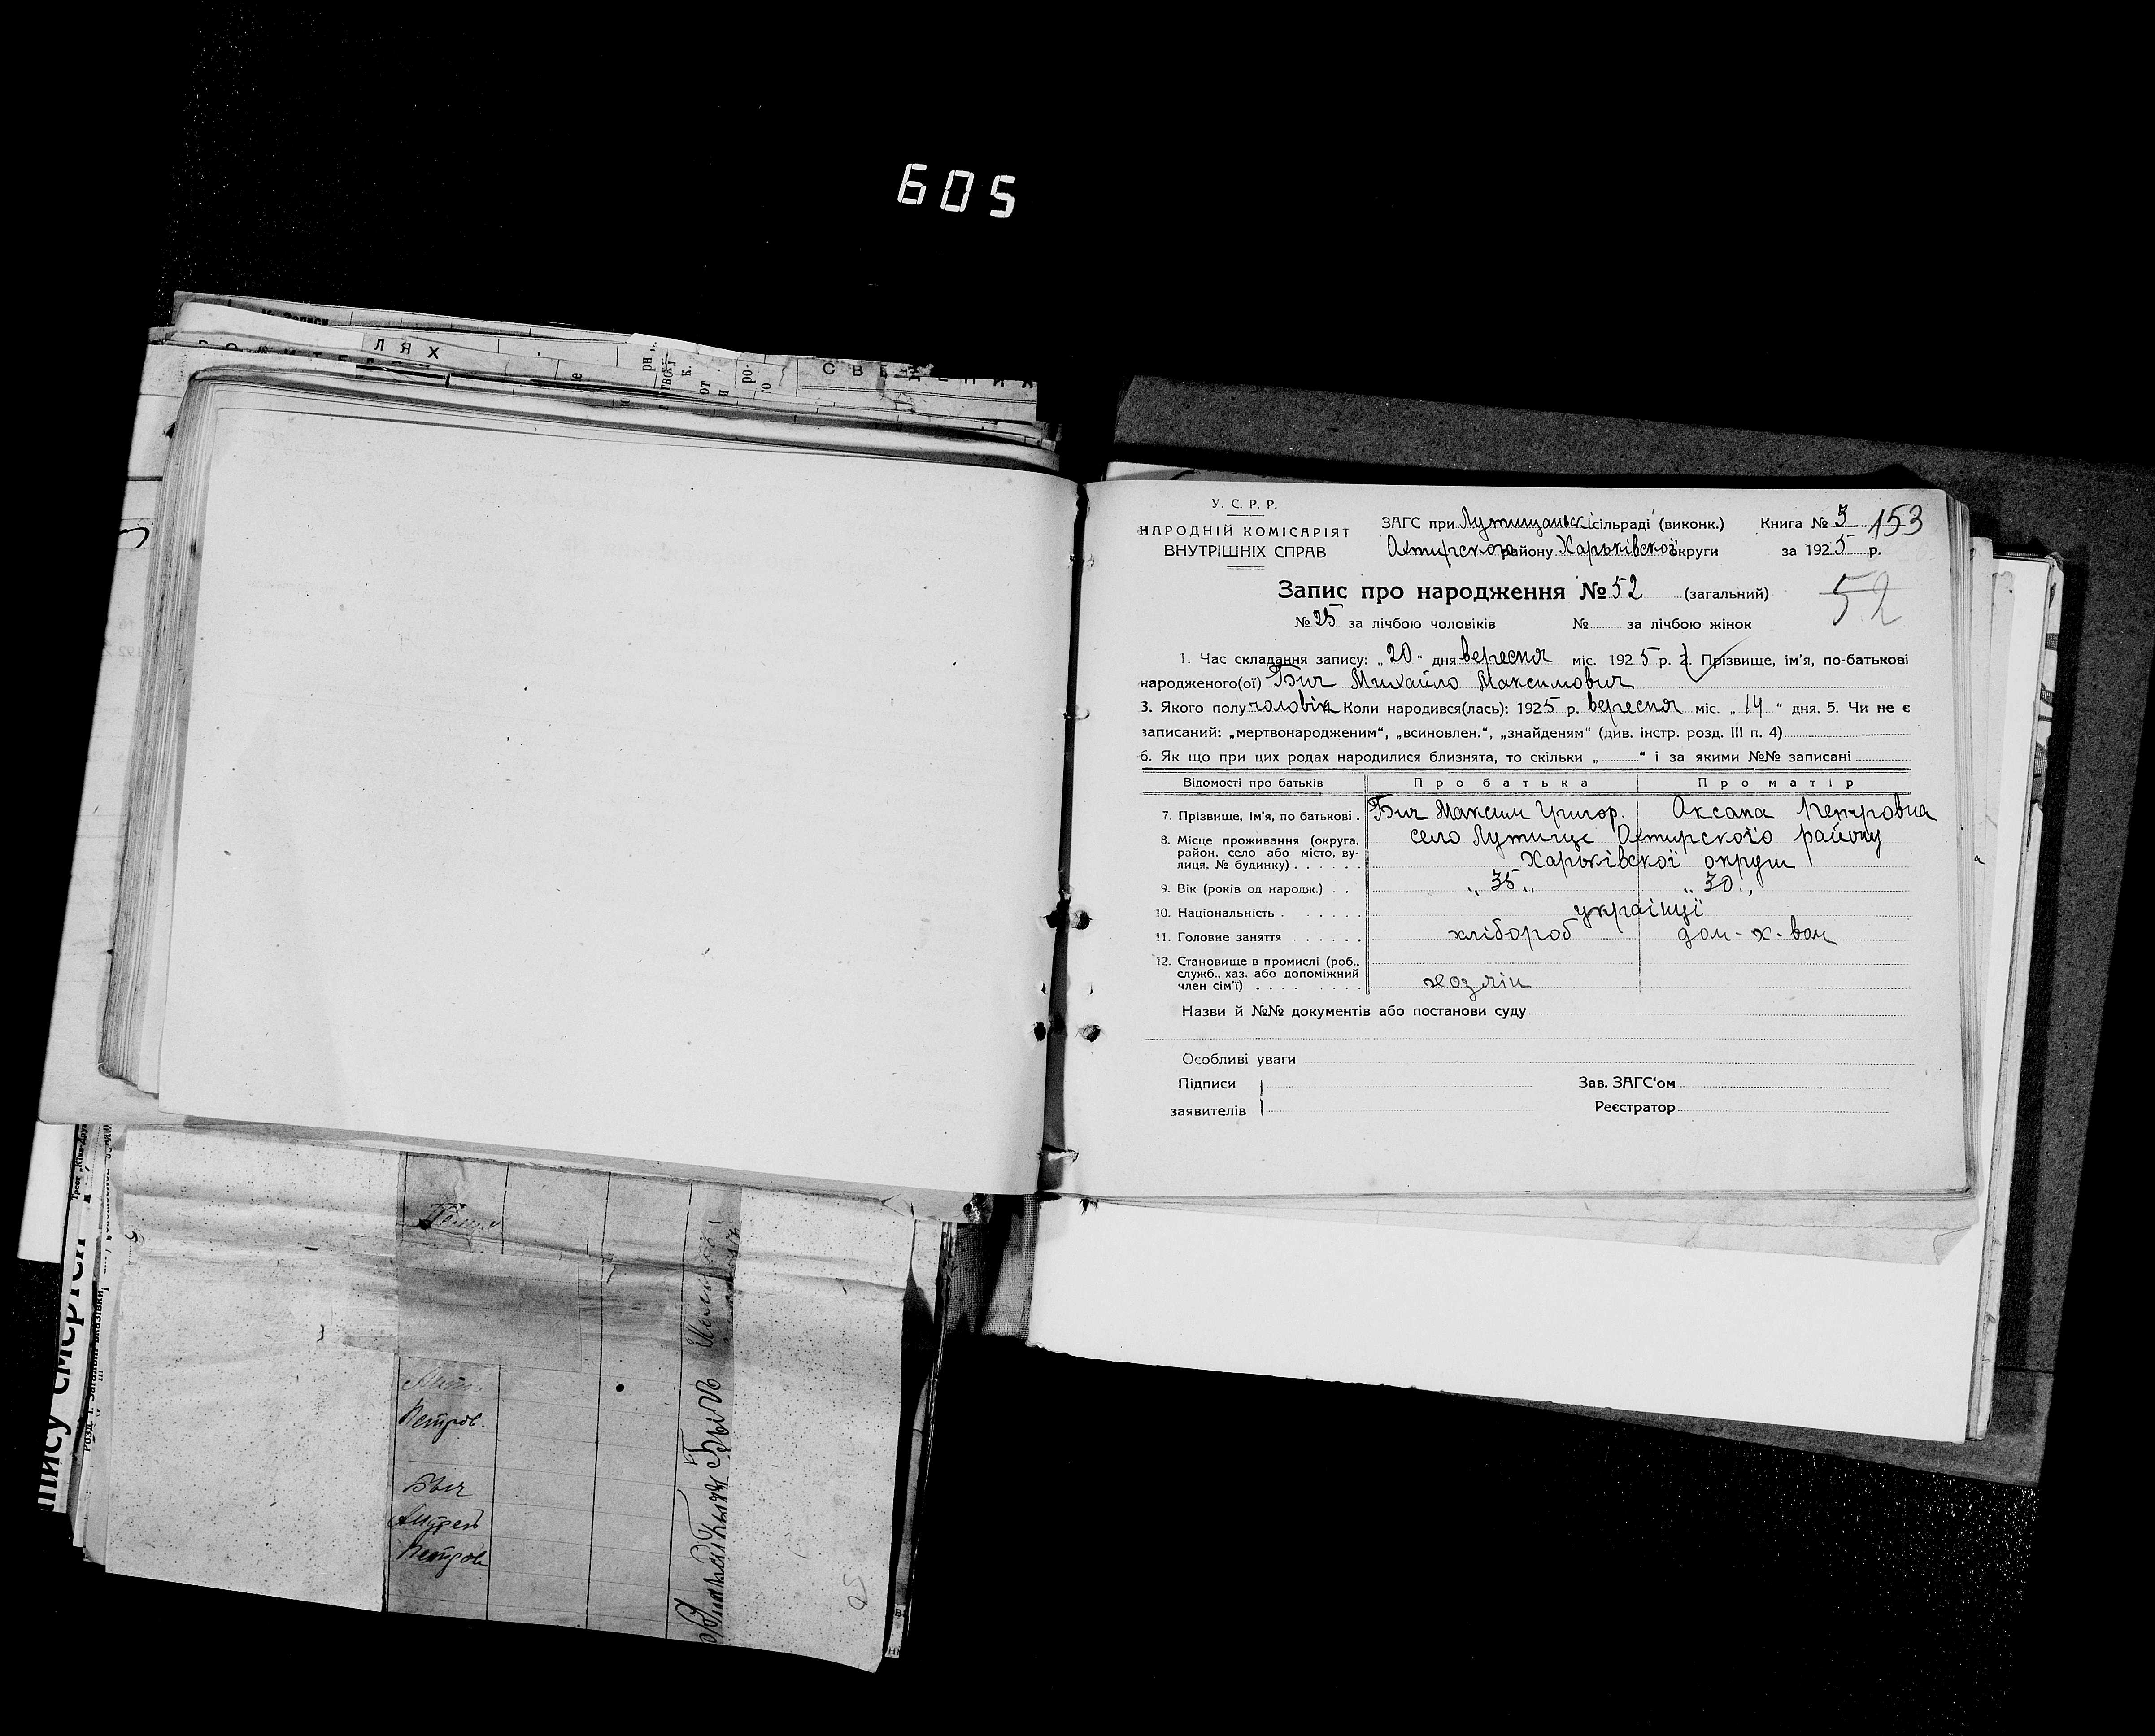 605
ЛЯХ
У. С. Р. Р.
НАРОДНІЙ КОМІСАРІЯТ
ВНУТРІШНІХ СПРАВ
ЗАГС при Лутищанськ сільраді (виконк.) Книга № 3 153
Охтирского району Харьківской округи за 1925 р.
Запис про народження № 52 (загальний) 52
№ 25 за лічбою чоловіків № за лічбою жінок
1. Час складання запису: „20“ дня вересня міс. 1925 р. 2. Прізвище, ім'я, по-батькові
народженого(ої) Бич Михайло Максимович
3. Якого полу чоловік Коли народився(лась): 1925 р. вересня міс. „14“ дня. 5. Чи не є
записаний: „мертвонародженим“, „всиновлен.“, „знайденям“ (див. інстр. розд. III п. 4)
6. Як що при цих родах народилися близнята, то скільки „ “ і за якими №№ записані
Відомості про батьків Про батька Про матір
7. Прізвище, ім'я, по батькові. Бич Максим Григор. Оксана Петровна
8. Місце проживання (округа, село Лутище Охтирского району
район, село або місто, ву-
лиця. № будинку) Харьківскої округи
9. Вік (років од народж.) „35„ „30„
10. Національність українці
11. Головне заняття хлібороб дом-х-вом
12. Становище в промислі (роб.,
служб., хаз. або допоміжний
член сім'ї) хозяін
Назви й №№ документів або постанови суду
Особливі уваги
Підписи Зав. ЗАГС'ом
заявителів Реєстратор
Петров.
Быч
Андрей
Петров